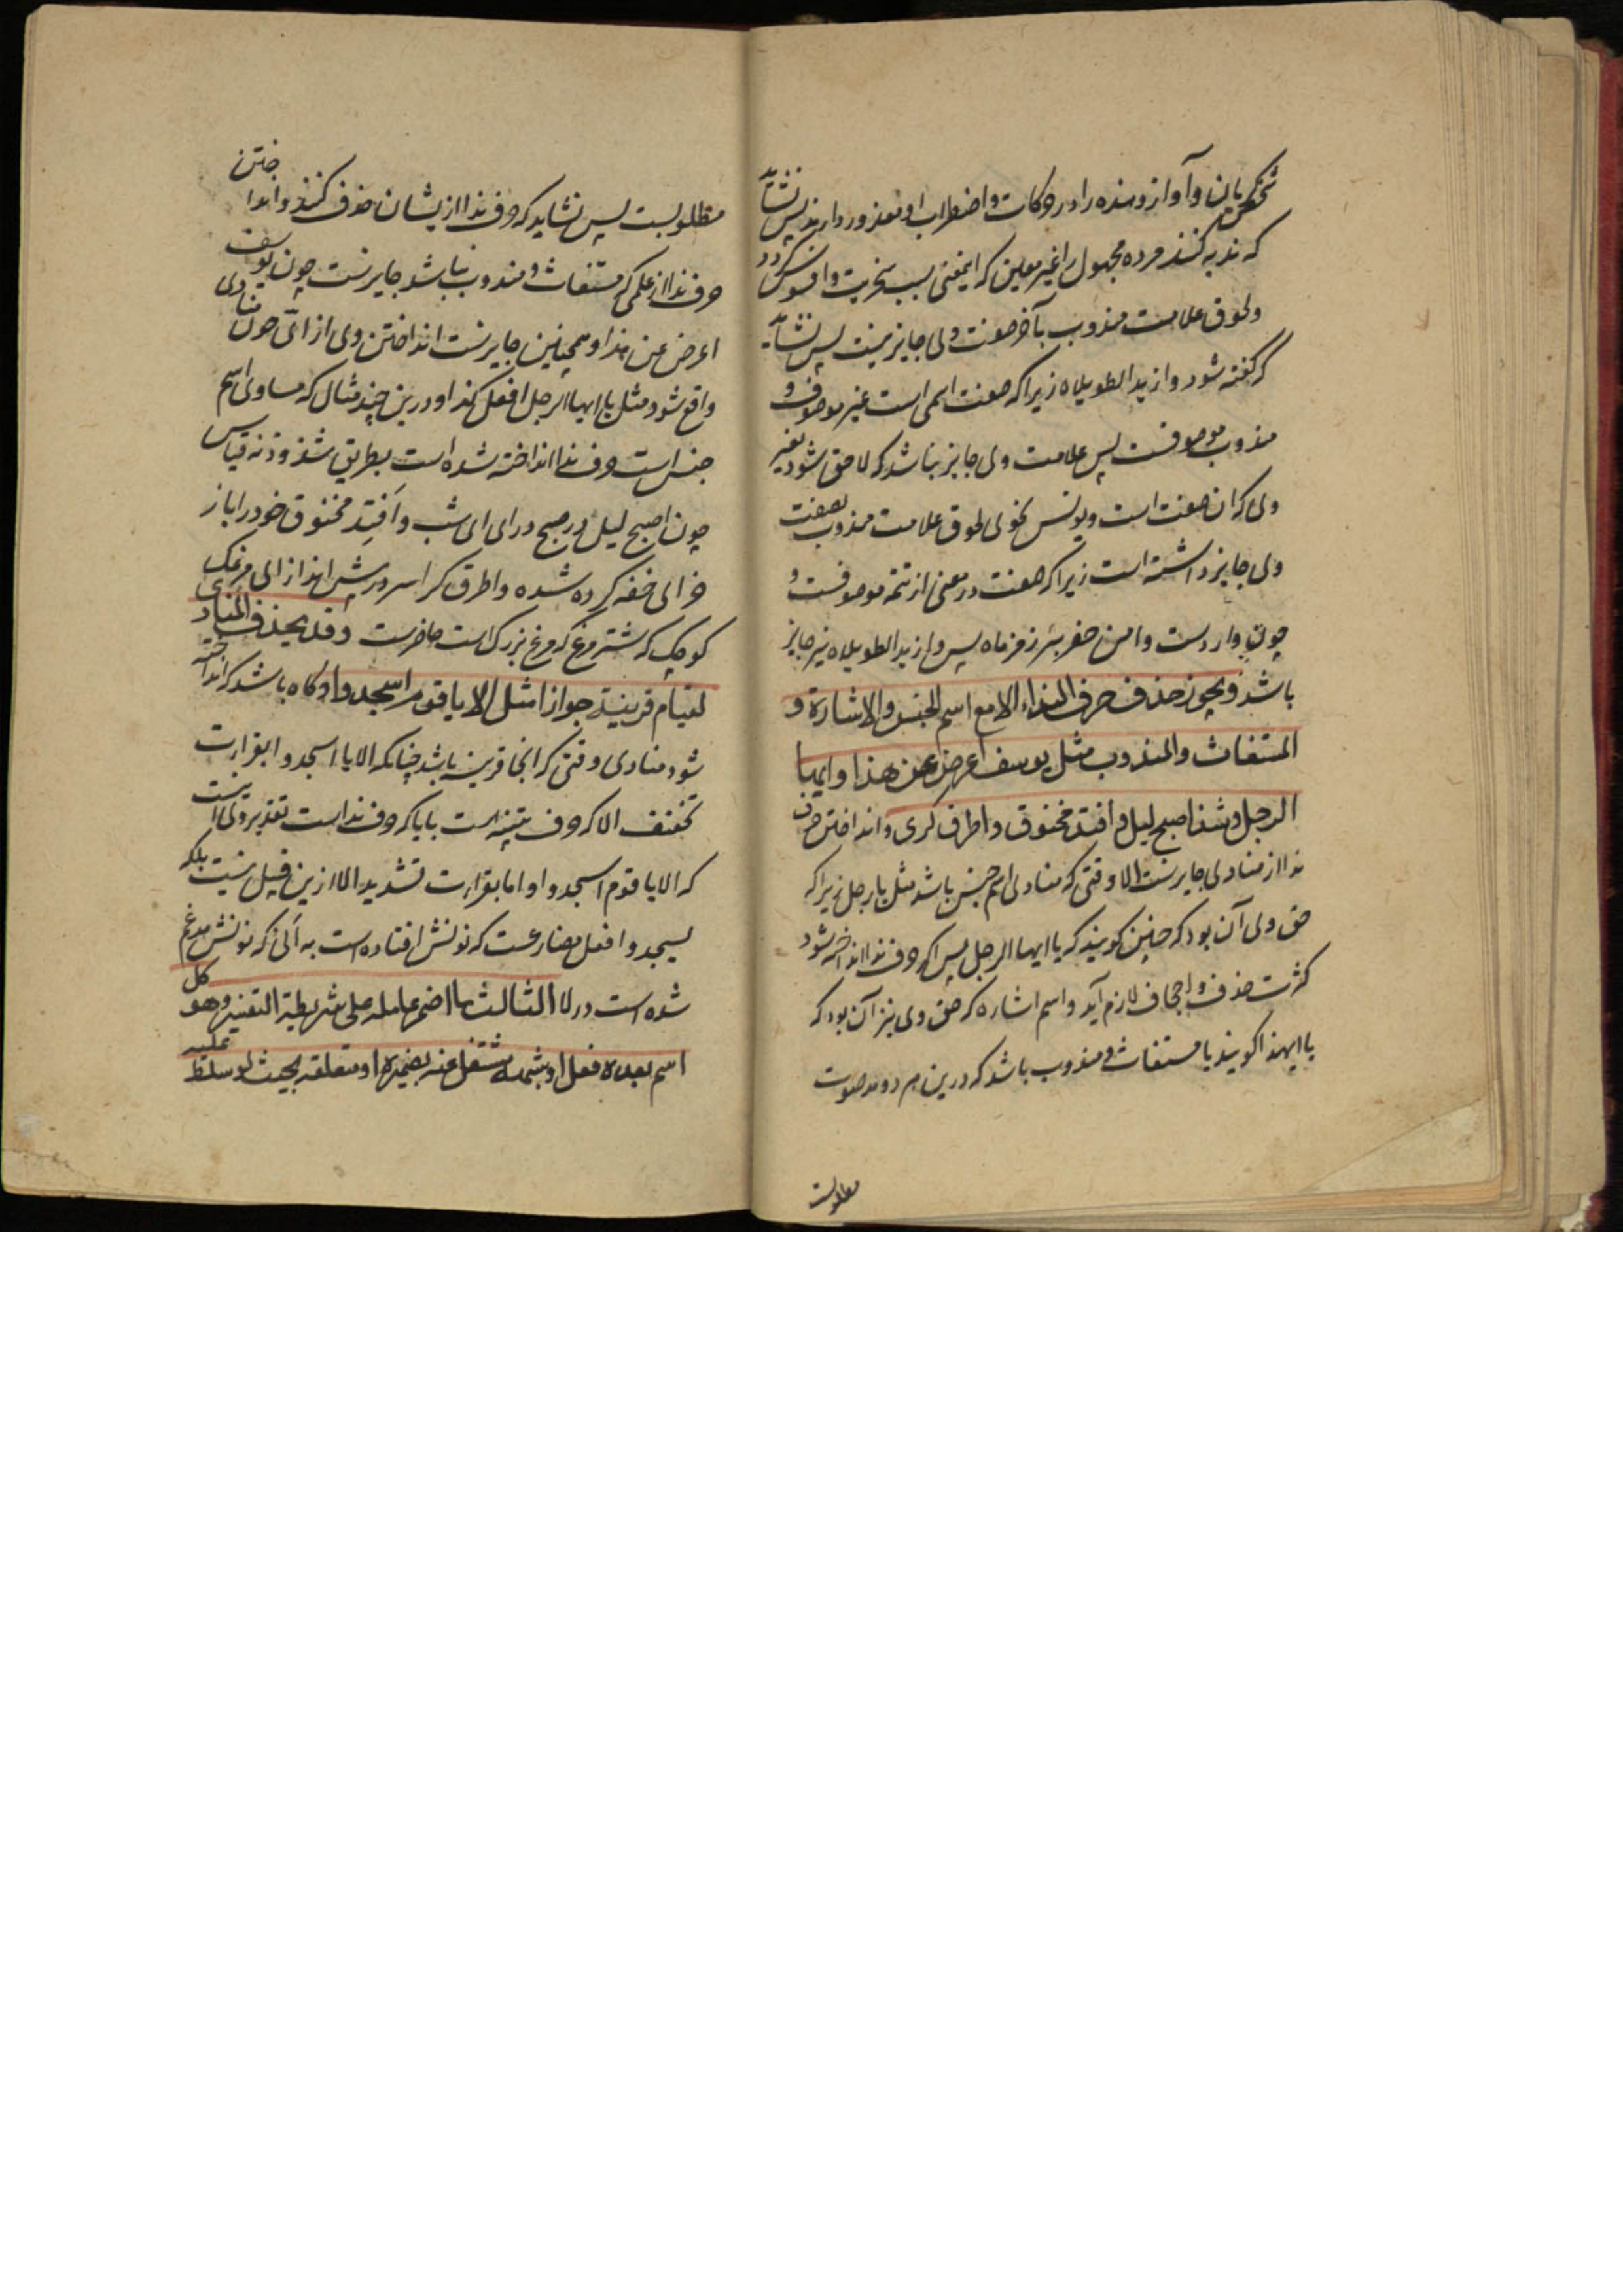 شخص کریان و آواز دهنده را در حرکات و اضطراب او معذور دارند پس نشاید
که ندبه کنند مرده مجهول را غیر معین که اینمعنی سبب سخریت و افسوس کردد
و لحوق علامت مندوب بآخر صفت ولی جایز نیست پس نشاید
که گفته شود وا زید الطویلاه زیرا که صفت اسمی است غیر موصوف و
مندوب موصوفست پس علامت ولی جایز نباشد که لاحق شود بغیر
ولی که ان صفت است و یونس نحوی لحوق علامت مندوب بصفت
ولی جایز داشته است زیرا که صفت در معنی از تتمه موصوفست و
چون وارد ست وامن حفر بئر زمزماه پس وا زید الطویلاه نیز جایز
باشد و یجوز حذف حرف النداء الا مع اسم الجنس و الاشارة و
المستغاث والمندوب مثل یوسف اعرض عن هذا و ایها
الرجل و شذ اصبح لیل و افتد مخنوق و اطرق کری و انداختن حرف
ندا از منادی جایز ست الا وقتی که منادی اسم جنس باشد مثل یا رجل زیرا که
حق ولی آن بود که چنین کویند که یا ایها الرجل پس اکر حرف ندا انداخته شود
کثرت حذف و اجحاف لازم آید و اسم اشاره که حق وی نیز آن بود که
یا ایهذا کویند یا مستغاث و مندوب باشد که درین هر دو مد صوت
مطلوبست
مطلوبست پس نشاید که حرف ندا از یشان حذف کنند و انداختن
حرف ندا از علمی که مستغاث و مندوب نباشد جایز ست چون یوسف
اعرض عن هذا و همچنین جایز ست انداختن وی از ایّ چون منادی
واقع شود مثل یا ایها الرجل افعل کذا و درین چند مثال که منادی اسم
جنس است حرف ندا انداخته شده است بطریق شذوذ نه قیاس
چون اصبح لیل در صبح درای ای شب و اَفتِد مخنوق خود را باز
خر ای خفه کرده شده و اطرق کرا سر در پیش انداز ای مرغک
کوچک که شتر مرغ که مرغ بزرک است حاضر ست و قد یحذف المنادی
لقیام قرینة جوازا مثل الا یا قوم اسجدوا و کاه باشد که انداخته
شود منادی وقتی که انجا قرینه باشد چنانکه الا یا اسجدوا بقراءت
تخفیف الا که حرف تنبیه است با یا که حرف نداست تقدیر ولی انیست
که الا یا قوم اسجدوا و اما بقراءت تشدید الا ازین قبیل نیست بلکه
یسجدوا فعل مضارعست که نونش افتاده است به اَنی که نونش مدغم
شده است در لا الثالث ما اضمر عامله علی شریطة التفسیر و هو کل
اسم بعده فعل او شبهه مشتغل عنه بضمیره او متعلقه بحیث لو سلط علیه